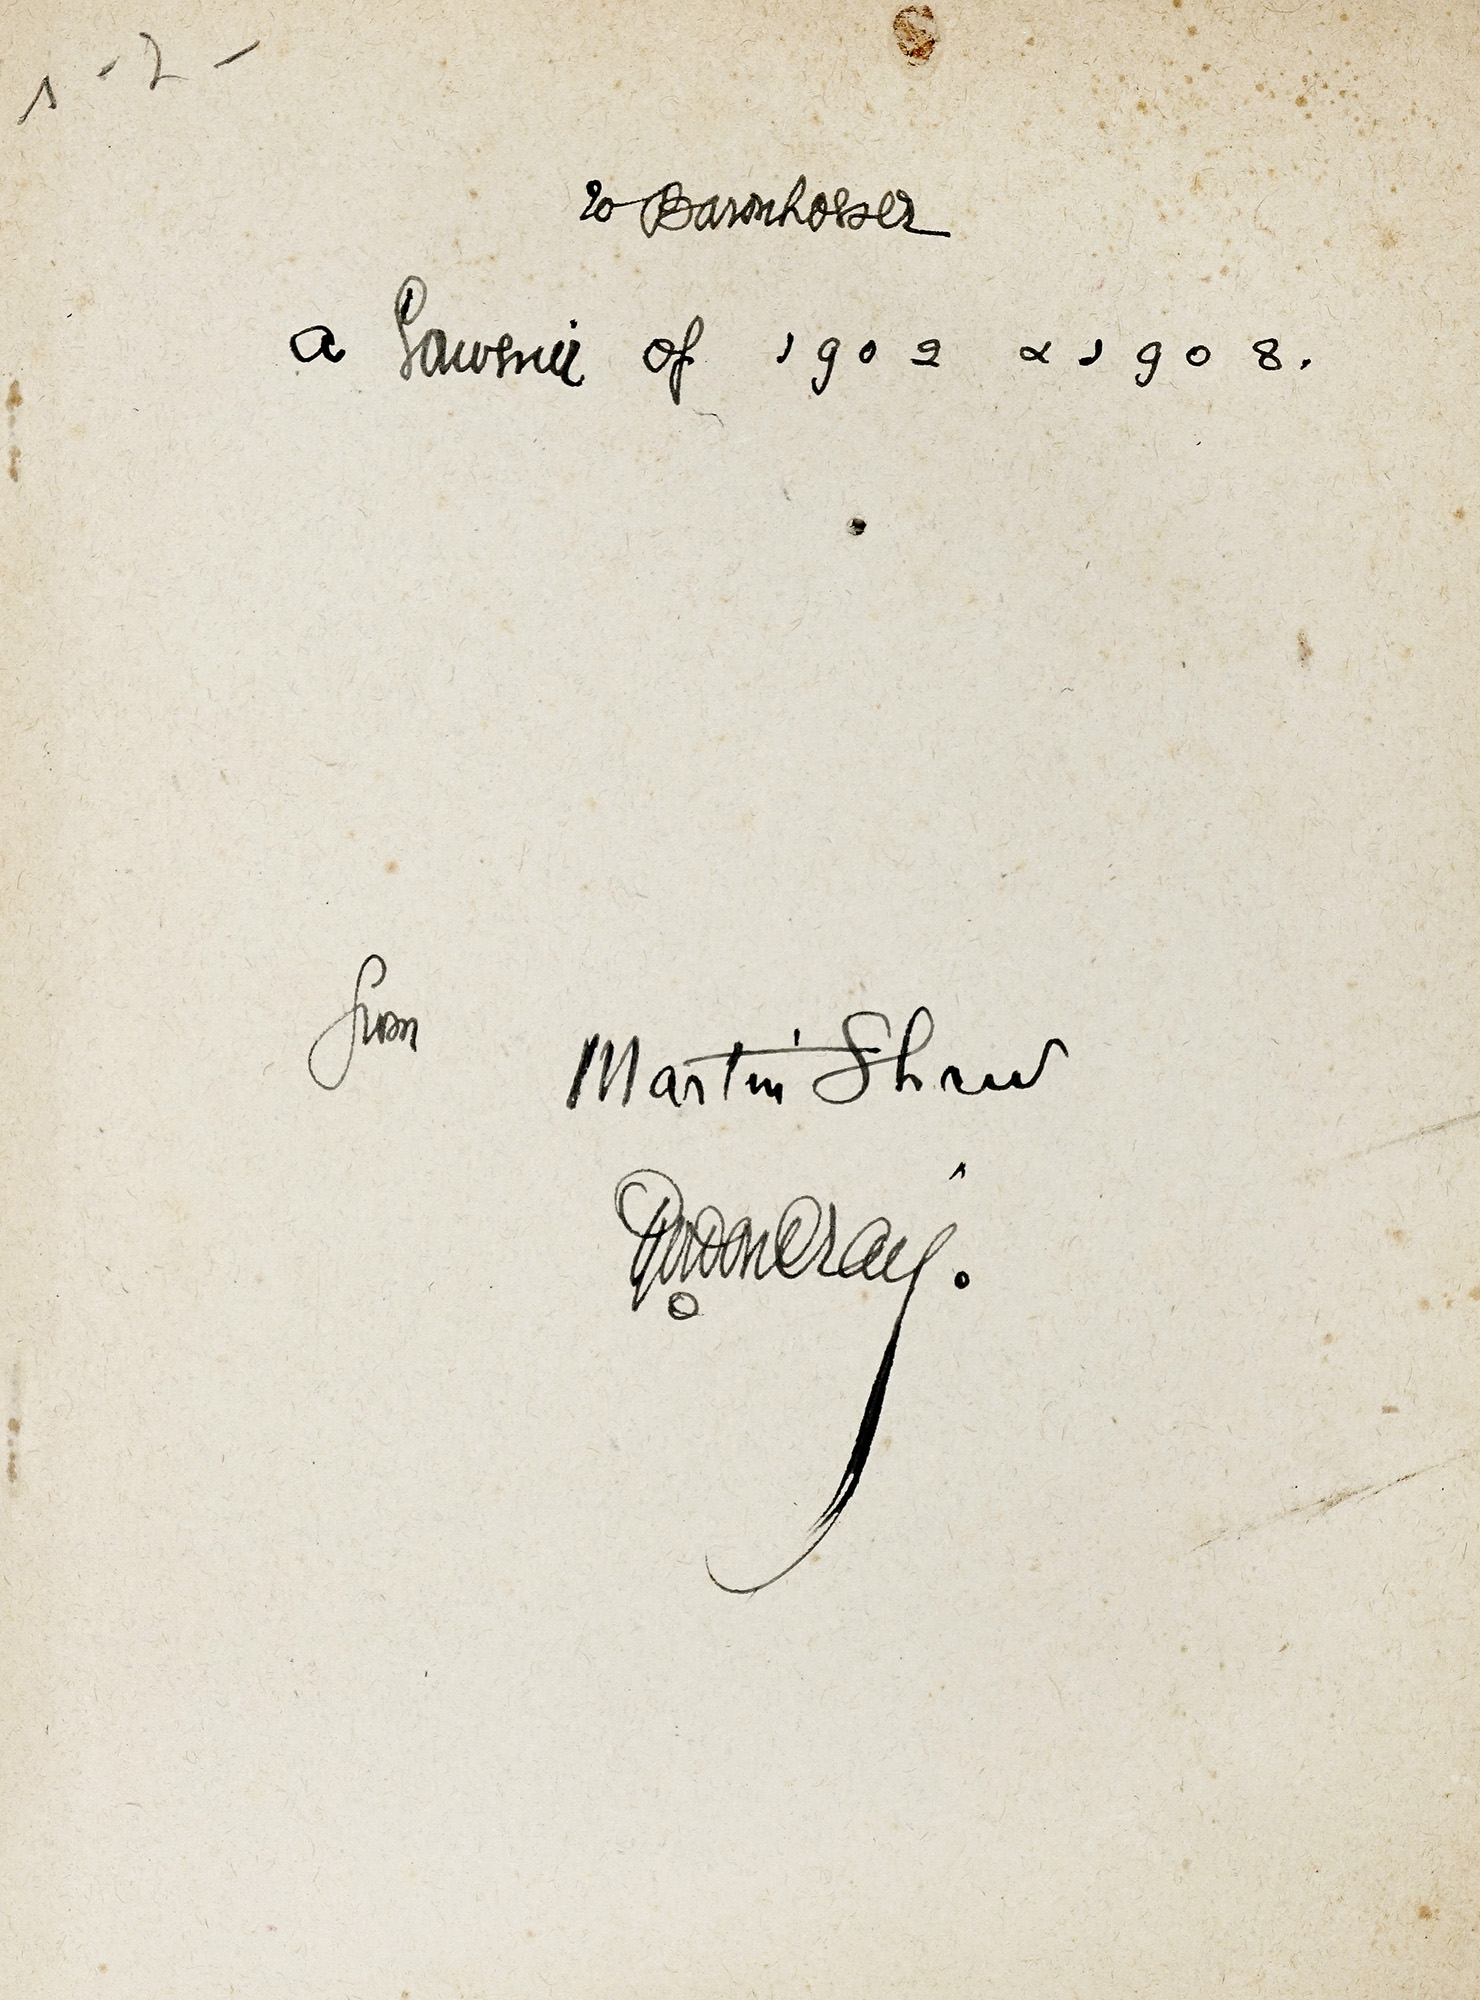 1 - 2 -
to
a Souvenir of 1902 & 1908.
from Martin Shaw
Gordon Craig.